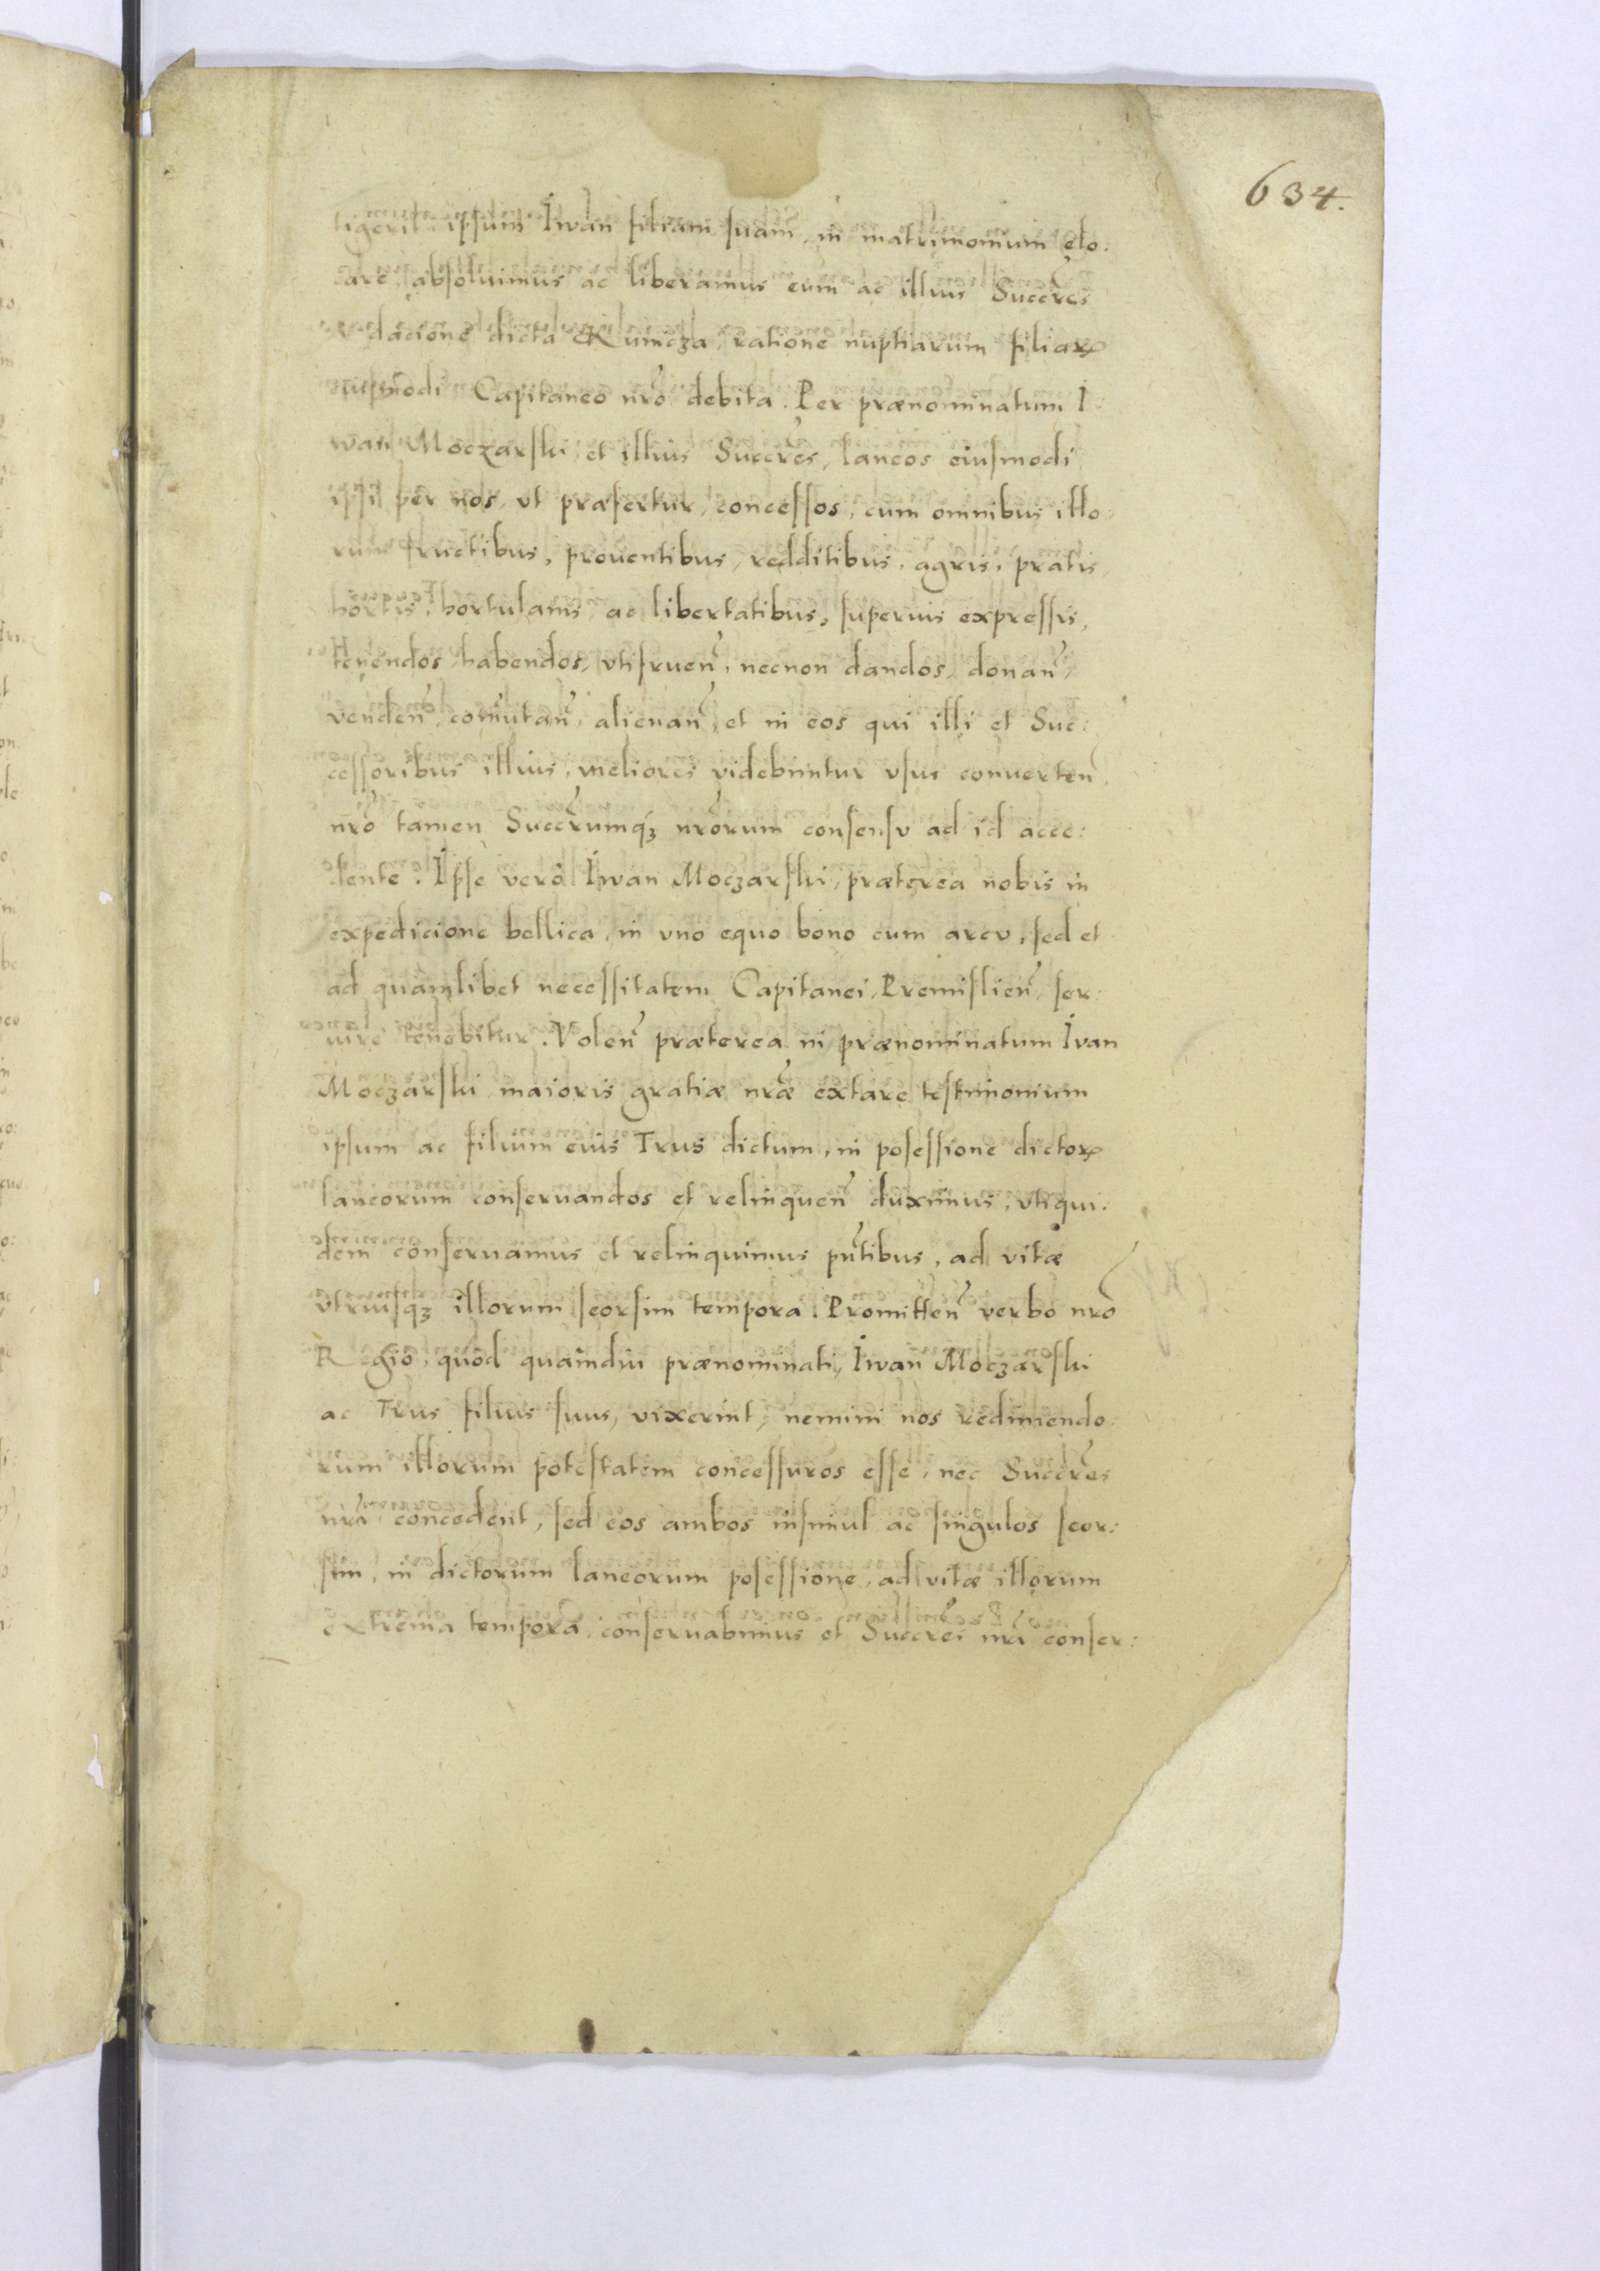 634.
tigerit ipsum Iwan filiam suam, in matrimonium elo:
care, absoluimus ac liberamus eum ac illius Succres
a dacione dicta Kunicza, ratione nuptiarum filiarꝝ
eiusmodi Capitaneo nro debita. Per prænominatum I:
wan Moczarski et illius Succres, laneos eiusmodi
ipsi per nos, vt præfertur, concessos, cum omnibus illo:
rum fructibus, prouentibus, redditibus, agris, pratis,
hortis, hortulanis ac libertatibus, superius expressis,
tenendos, habendos, vtifruen, necnon dandos, donan,
venden, comutan, alienan, et in eos qui illi et Suc:
cessoribus illius, meliores videbuntur vsus conuerten
nro tamen Succrumqꝫ nrorum consensu ad id acce:
dente. Ipse vero Iwan Moczarski, præterea nobis in
expedicione bellica, in vno equo bono cum arcu, sed et
ad quamlibet necessitatem Capitanei, Premislien, ser:
uire tenebitur. Volen præterea in prænominatum Ivan
Moczarski maioris gratiæ nræ extare testimonium
ipsum ac filium eius Trus dictum, in posessione dictorꝝ
laneorum conseruandos et relinquen duximus, vtiqui:
dem conseruamus et relinquimus pntibus, ad vitæ
vtriusqꝫ illorum seorsim tempora. Promitten verbo nro
Regio, quod quamdiu prænominati, Iwan Moczarski
ac Trus filius suus, vixerint, nemini nos redimendo:
rum illorum potestatem concessuros esse, nec Succres
nri concedent, sed eos ambos insimul ac singulos seor:
sim, in dictorum laneorum posessione, ad vitæ illorum
extrema tempora, conseruabimus et Succres nri conser: